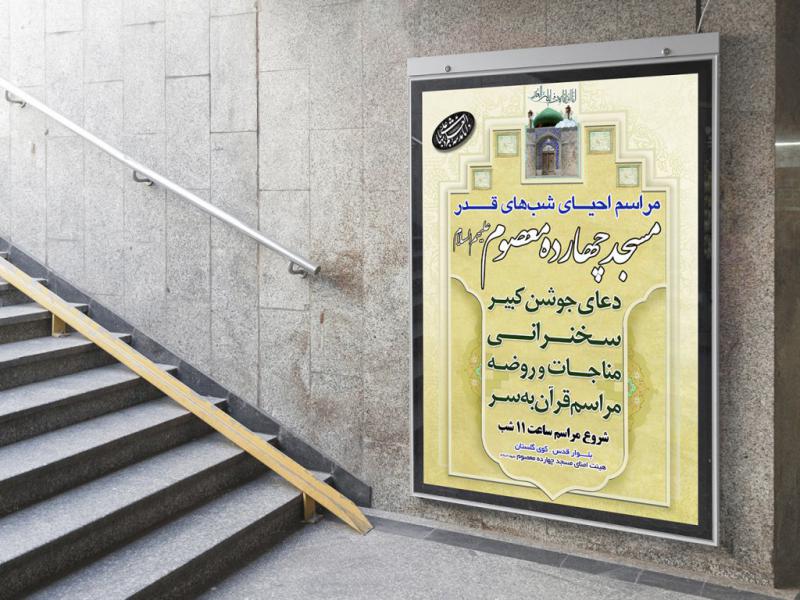 انا انزلناه فی لیلة القدر
مراسم احیای شب‌های قدر
مسجد چهارده معصوم علیهم السلام
دعای جوشن کبیر
سخنرانی
مناجات و روضه
مراسم قرآن به سر
شروع مراسم ساعت ۱۱ شب
بلوار قدس . کوی گلستان
هیئت امنای مسجد چهارده معصوم